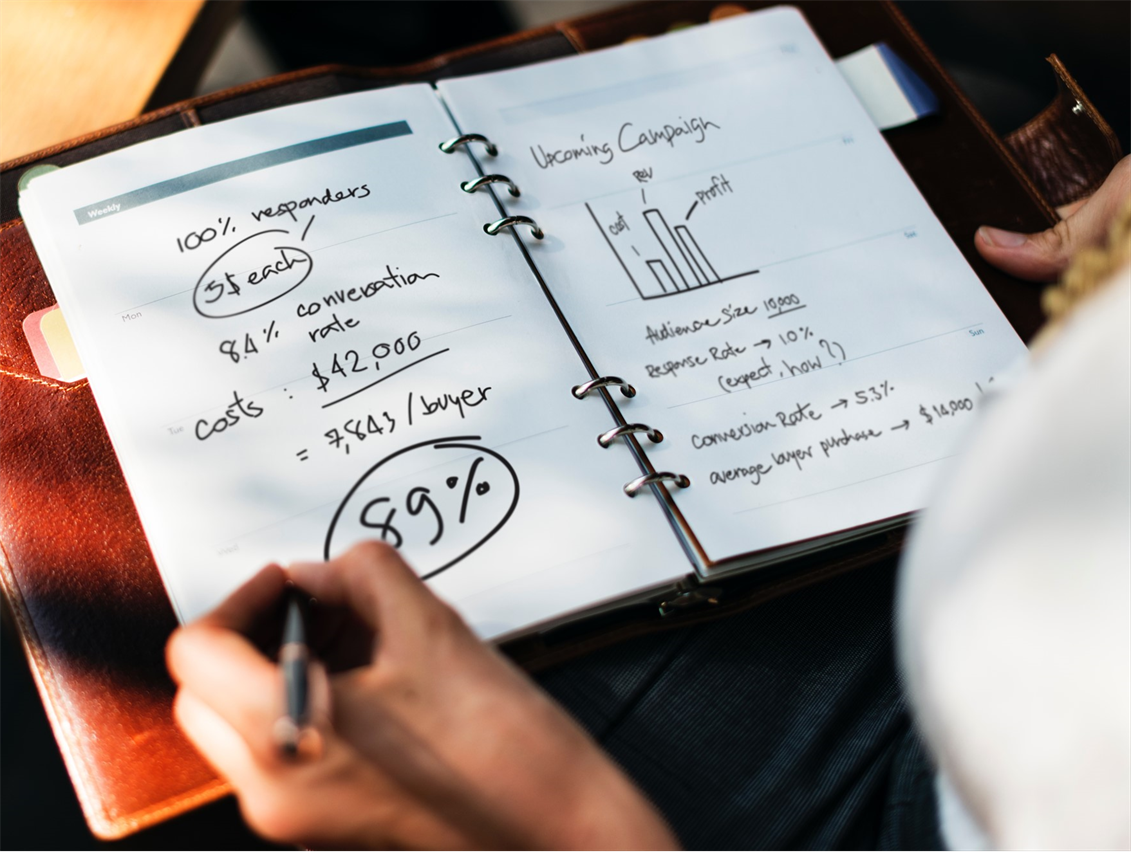 Weekly
100% responders
5$ each
Mon
8.4% conversation
rate
Tue
costs : $42,000
= 7,843 / buyer
89%
Upcoming Campaign
REV
Profit
cost
Sat
Audience Size 10,000
Response Rate → 1.0%
(expect, how?)
Sun
Conversion Rate → 5.3%
average buyer purchase → $14,000